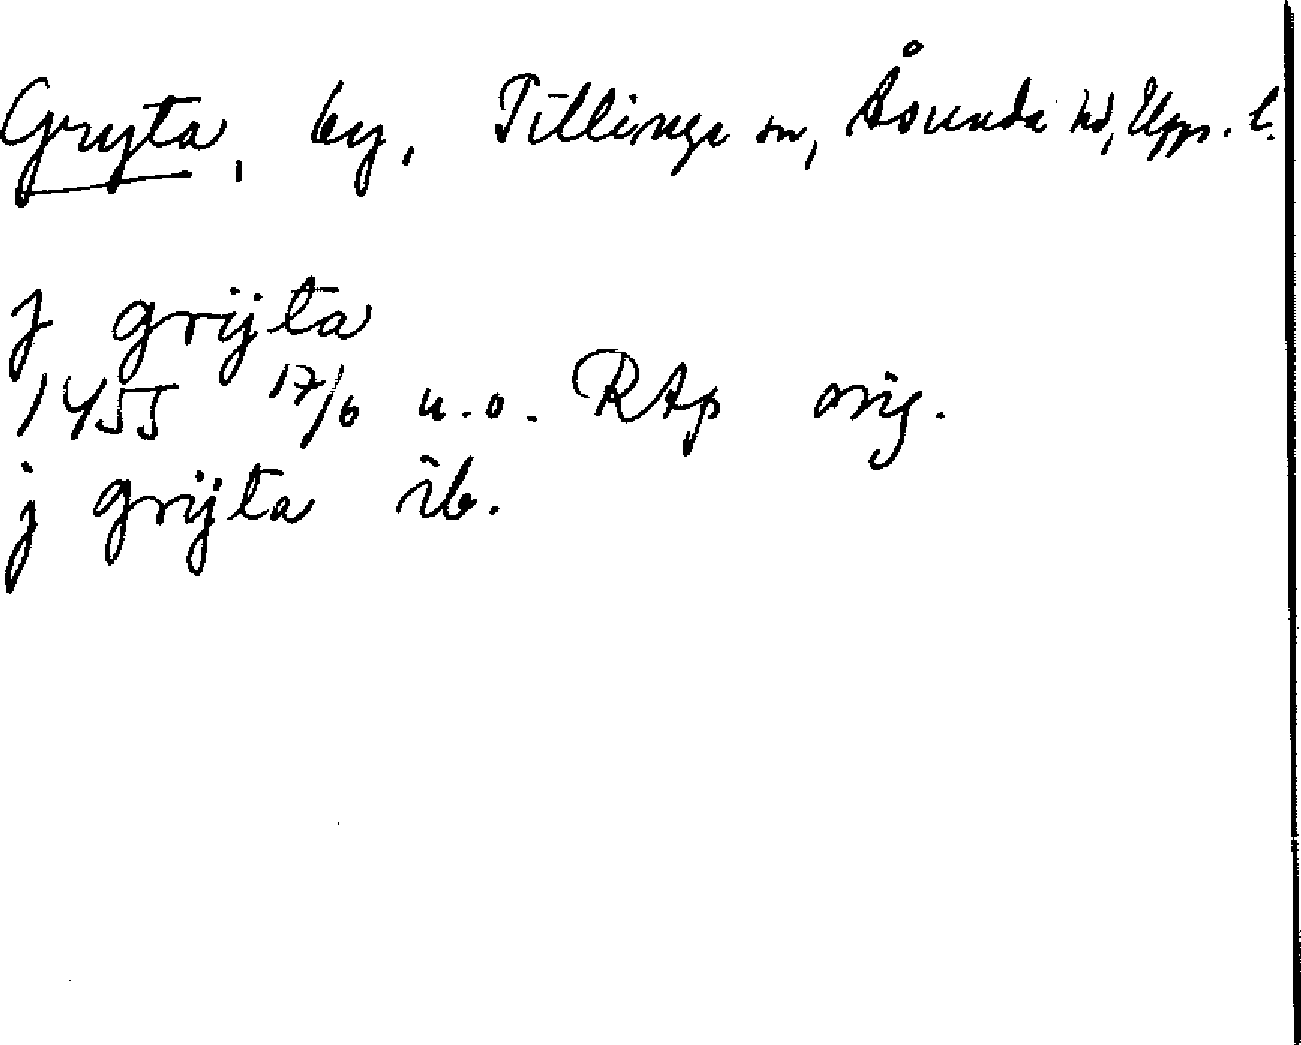 Gryta, by, Tillinge sn, Åsunda hd, Upps. l.
j grijta
1455 17/6 u.o. RAp orig.
j grijta ib.